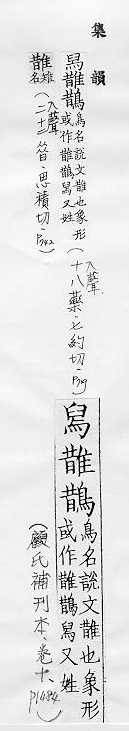 集韻
舄䧿鵲
鳥名說文䧿也象形
或作䧿鵲舄又姓
(入聲十八藥.七約切.
䧿
雉名
(入聲二十二昔.思積切.
舄䧿鵲
鳥名說文䧿也象形
或作䧿鵲舄又姓
(顧氏補刊本、卷十、P1484)